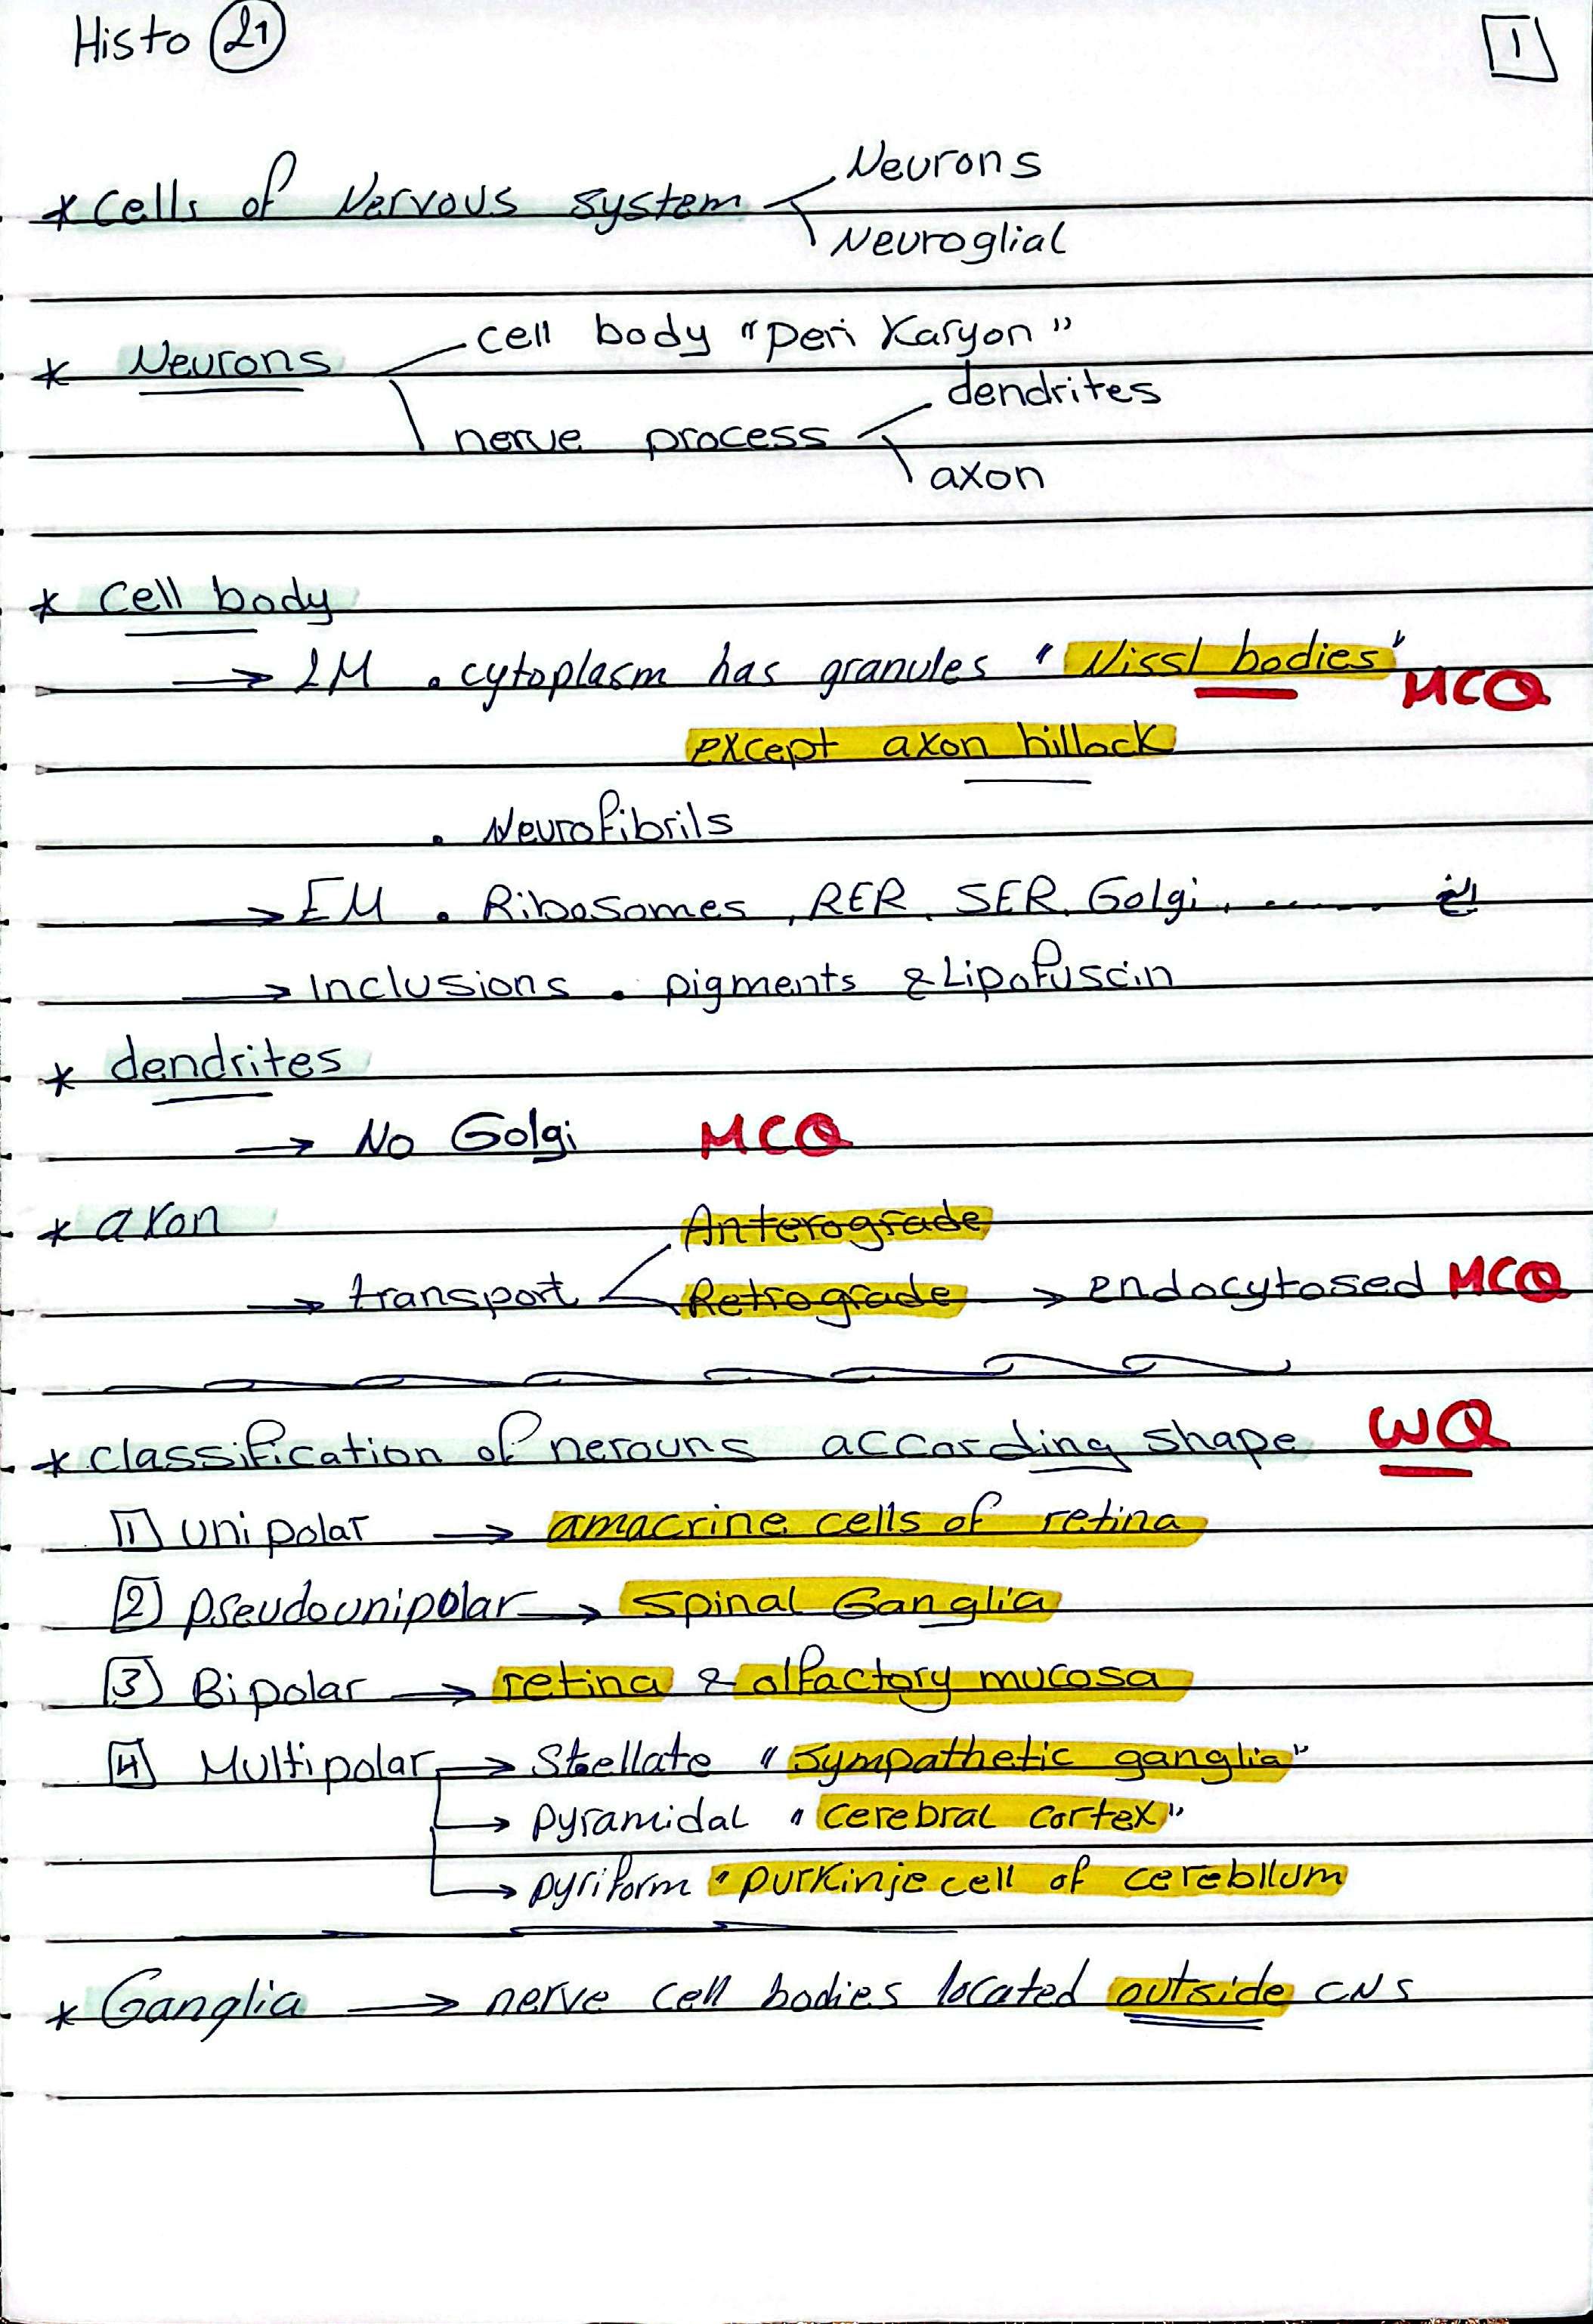 Histo 21
1
* Cells of Nervous system
Neurons
Neuroglial
* Neurons
cell body "peri Karyon"
nerve process
dendrites
axon
* Cell body
→ LM • cytoplasm has granules "Nissl bodies" MCQ
except axon hillock
• Neurofibrils
→ EM • Ribosomes, RER, SER, Golgi, ........ الخ
→ Inclusions • pigments & Lipofuscin
* dendrites
→ No Golgi MCQ
* axon
→ transport
Anterograde
Retrograde → endocytosed MCQ
* classification of nerouns according shape WQ
1 unipolar → amacrine cells of retina
2 pseudounipolar → spinal Ganglia
3 Bipolar → retina & olfactory mucosa
4 Multipolar → Stellate "sympathetic ganglia"
→ pyramidal "cerebral cortex"
→ pyriform "purkinje cell of cerebllum
* Ganglia → nerve cell bodies located outside CNS